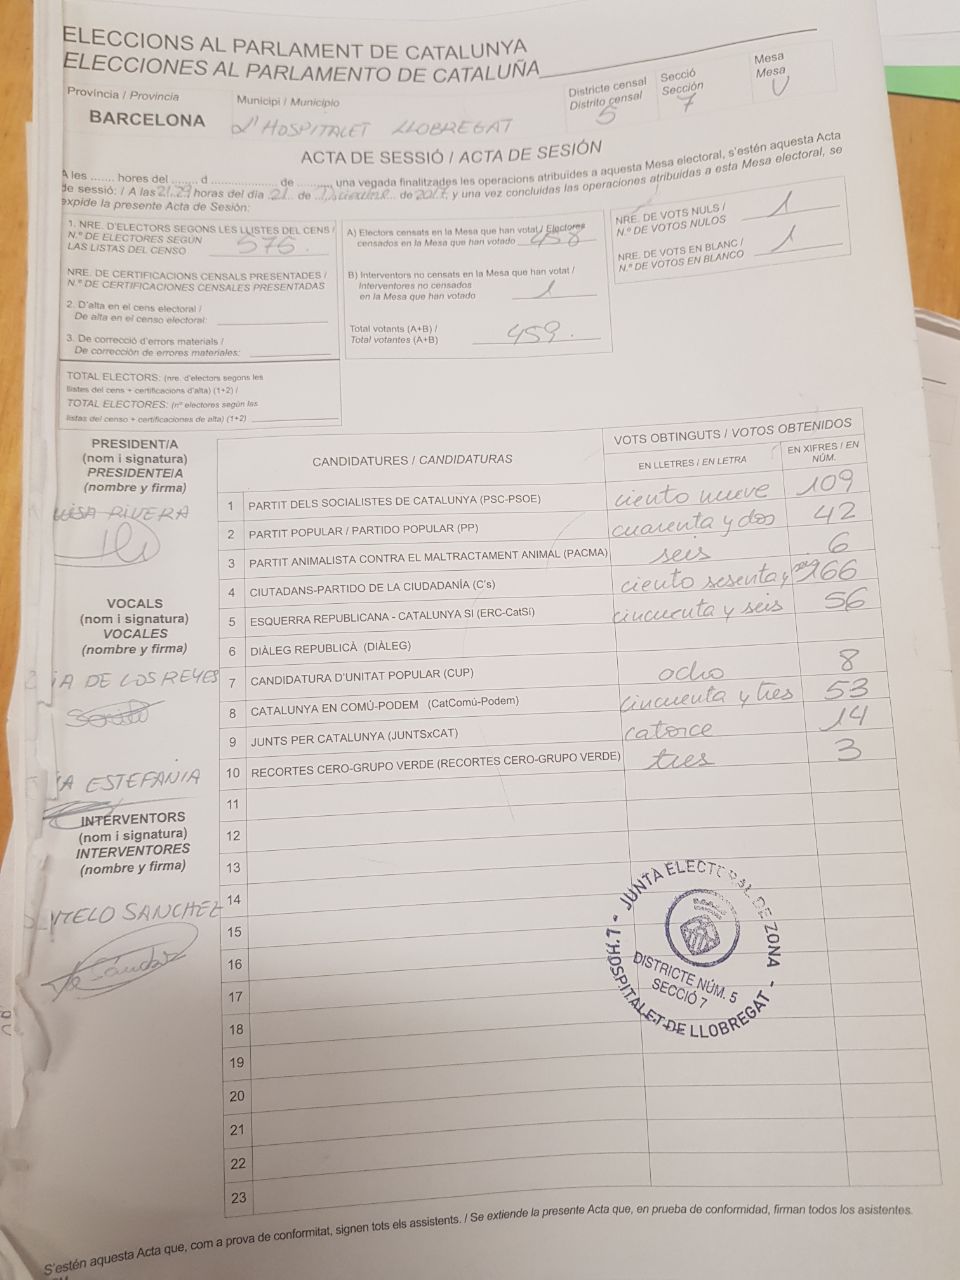 ELECCIONS AL PARLAMENT DE CATALUNYA
ELECCIONES AL PARLAMENTO DE CATALUÑA
Província / Provincia
BARCELONA
Municipi / Municipio
L'HOSPITALET LLOBREGAT
Districte censal
Distrito censal
5
Secció
Sección
7
Mesa
Mesa
U
ACTA DE SESSIÓ / ACTA DE SESIÓN
A les ....... hores del ....... d ................... de ........., una vegada finalitzades les operacions atribuides a aquesta Mesa electoral, s'estén aquesta Acta
de sessió: / A las 21,29 horas del día 21 de Diciembre de 2017, y una vez concluidas las operaciones atribuidas a esta Mesa electoral, se
expide la presente Acta de Sesión:
1. NRE. D'ELECTORS SEGONS LES LLISTES DEL CENS /
N.º DE ELECTORES SEGÚN
LAS LISTAS DEL CENSO
575
NRE. DE CERTIFICACIONS CENSALS PRESENTADES /
N.º DE CERTIFICACIONES CENSALES PRESENTADAS
2. D'alta en el cens electoral /
De alta en el censo electoral:
3. De correcció d'errors materials /
De corrección de errores materiales:
TOTAL ELECTORS: (nre. d'electors segons les
llistes del cens + certificacions d'alta) (1+2) /
TOTAL ELECTORES: (nº electores según las
listas del censo + certificaciones de alta) (1+2)
A) Electors censats en la Mesa que han votat / Electores
censados en la Mesa que han votado 458
B) Interventors no censats en la Mesa que han votat /
Interventores no censados
en la Mesa que han votado 1
Total votants (A+B) /
Total votantes (A+B) 459.
NRE. DE VOTS NULS /
N.º DE VOTOS NULOS 1
NRE. DE VOTS EN BLANC /
N.º DE VOTOS EN BLANCO 1
PRESIDENT/A
(nom i signatura)
PRESIDENTE/A
(nombre y firma)
LUISA RIVERA
VOCALS
(nom i signatura)
VOCALES
(nombre y firma)
IA DE LOS REYES
A ESTEFANIA
INTERVENTORS
(nom i signatura)
INTERVENTORES
(nombre y firma)
SANCHEZ
Sánchez
CANDIDATURES / CANDIDATURAS
VOTS OBTINGUTS / VOTOS OBTENIDOS
EN LLETRES / EN LETRA
EN XIFRES / EN
NÚM.
1 PARTIT DELS SOCIALISTES DE CATALUNYA (PSC-PSOE) ciento nueve 109
2 PARTIT POPULAR / PARTIDO POPULAR (PP) cuarenta y dos 42
3 PARTIT ANIMALISTA CONTRA EL MALTRACTAMENT ANIMAL (PACMA) seis 6
4 CIUTADANS-PARTIDO DE LA CIUDADANÍA (C's) ciento sesenta y seis 166
5 ESQUERRA REPUBLICANA - CATALUNYA SI (ERC-CatSí) cincuenta y seis 56
6 DIÀLEG REPUBLICÀ (DIÀLEG)
7 CANDIDATURA D'UNITAT POPULAR (CUP) ocho 8
8 CATALUNYA EN COMÚ-PODEM (CatComú-Podem) cincuenta y tres 53
9 JUNTS PER CATALUNYA (JUNTSxCAT) catorce 14
10 RECORTES CERO-GRUPO VERDE (RECORTES CERO-GRUPO VERDE) tres 3
11
12
13
14
15
16
17
18
19
20
21
22
23
JUNTA ELECTORAL DE ZONA
- L'HOSPITALET DE LLOBREGAT -
DISTRICTE NÚM. 5
SECCIÓ 7
S'estén aquesta Acta que, com a prova de conformitat, signen tots els assistents. / Se extiende la presente Acta que, en prueba de conformidad, firman todos los asistentes.